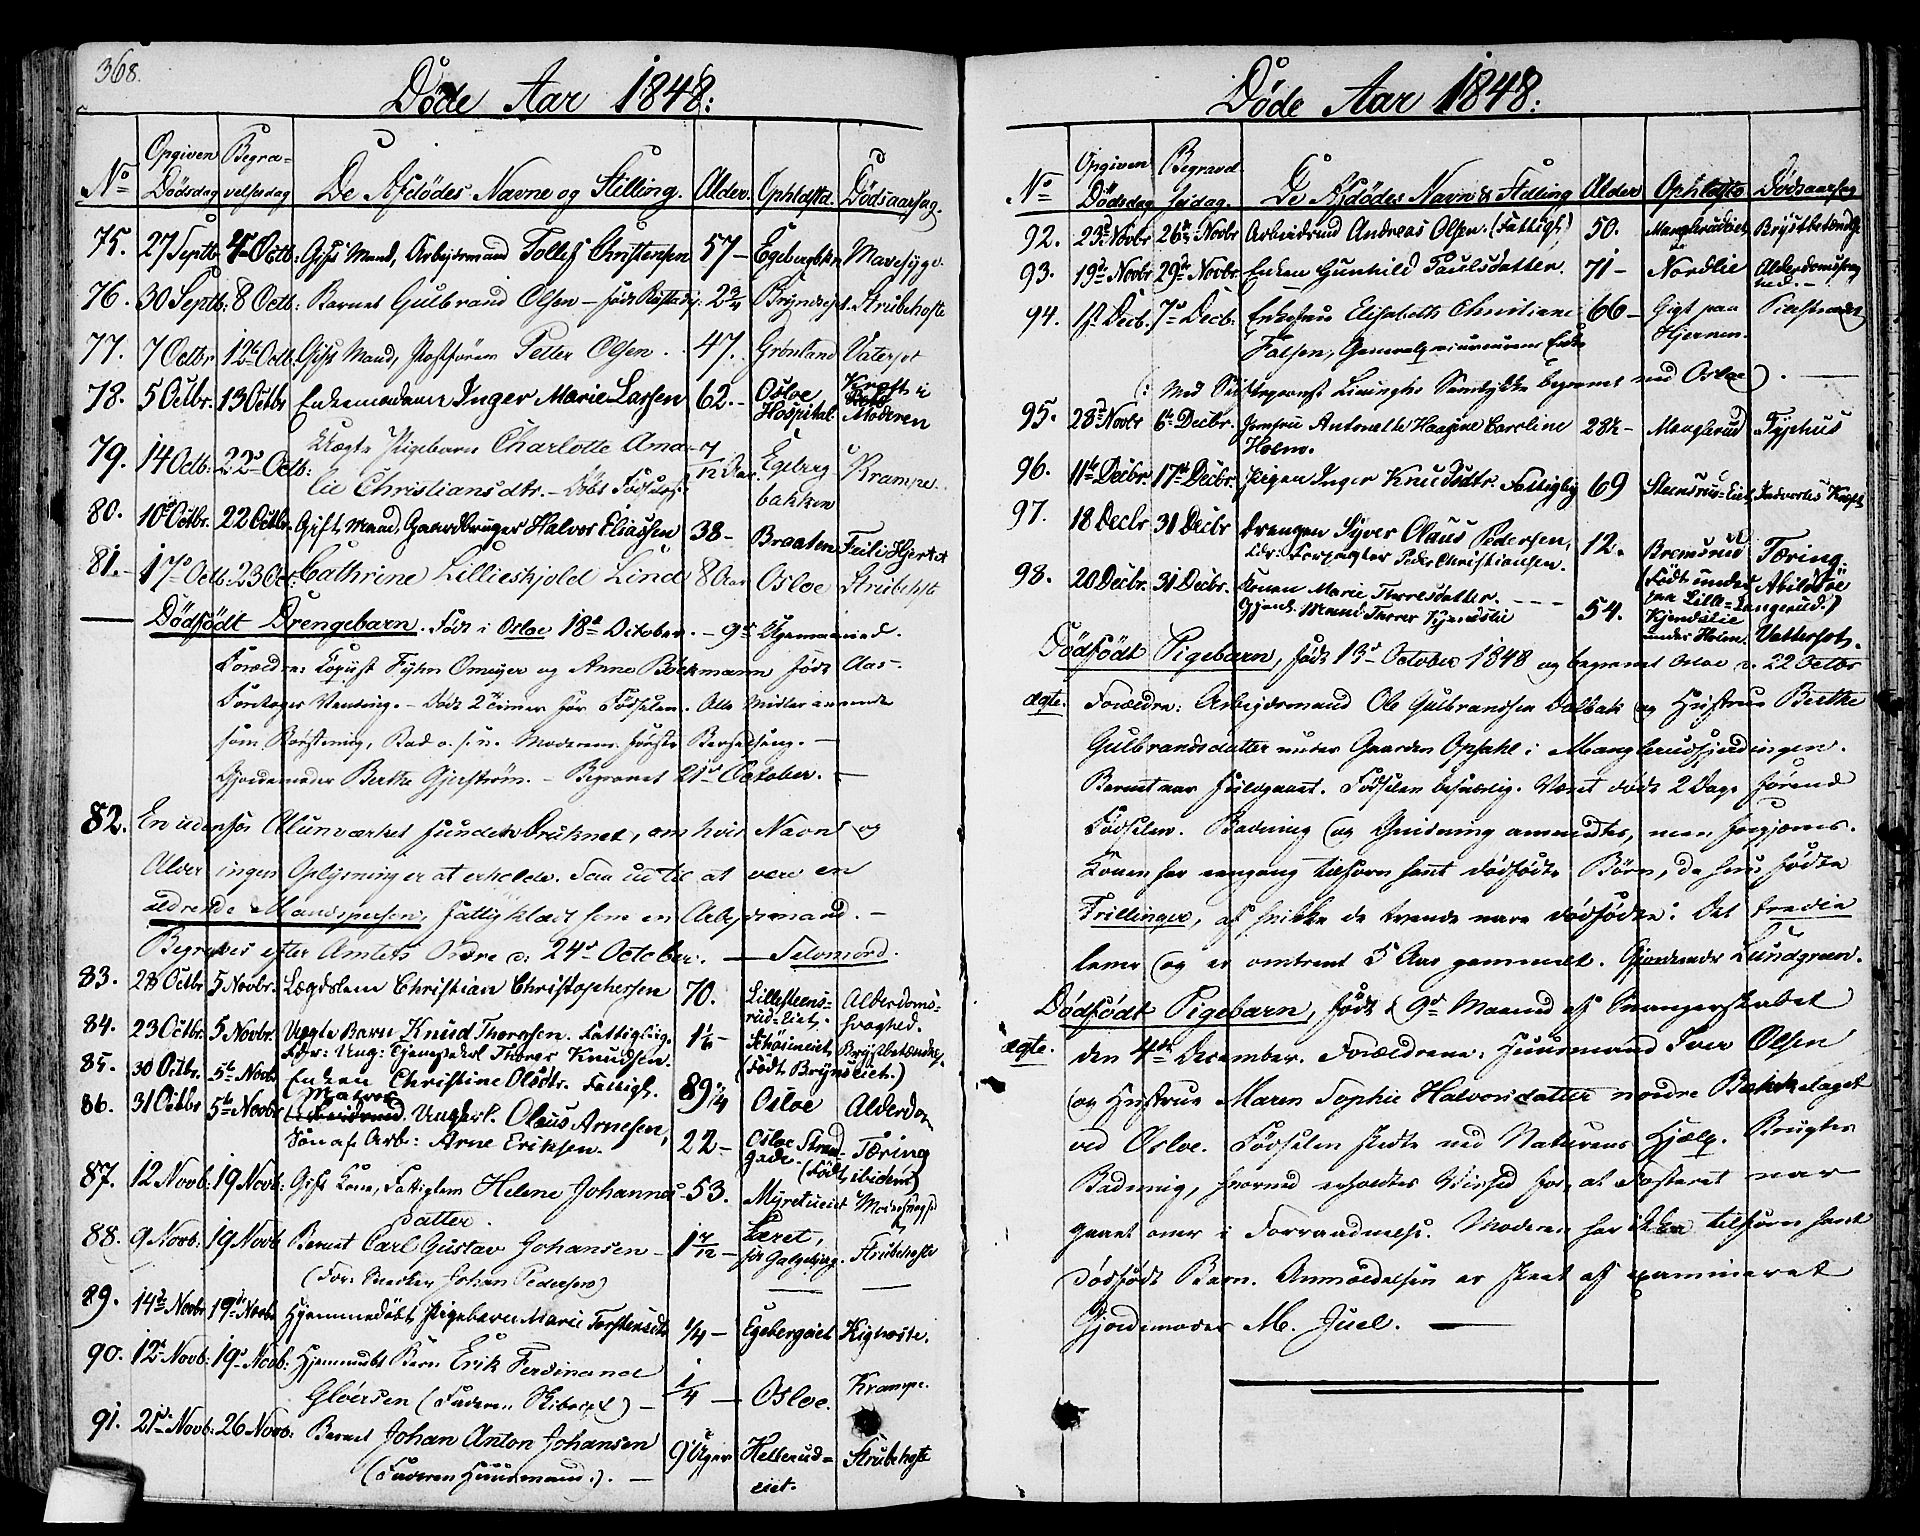 368.
Døde Aar 1848:
No Opgiven Dødsdag Begravelsesdag De Afdødes Navne og Stilling. Alder. Opholdstd. Dødsaarsag.
75. 27 Septb 4de Octb: Gift Mand, Arbejdsmand Tollef Christensen 57 – Egebergbkn Mavesyge.
76. 30 Septb: 8 Octb: Barnet Gulbrand Olsen – 2 3/4 Bryndsejet. Strubehoste
77. 7 Octbr 12te Octb. Gift Mand, Postfører Petter Olsen. 47. Grønland Vatersot
78. 5 Octbr. 13 Octbr Enkemadam Inger Marie Larsen 62. – Osloe Hospital Kræft i Moderen
79. 14 Octb: 22d Octb: Uægte Pigebarn Charlotte Ama-
lie Christiansdtr. – Døbt 7/12 Aar. Egeberg bakken Krampe.
80. 10de Octbr. 22 Octbr. Gift Mand, Gaardbruger Halvor Eliassen 38 – Braaten Feil i Hjertet
81. – 17de Octb. 23 Oct: Cathrine Lillieskjold Lind 8 Aar Osloe Strubehoste
Dødfødt Drengebarn. Født i Osloe 18d October. – 9de Ugemaaned.
Forældre: Copiist Fyhn Omejer og Anne Beckmann født Aas-
Foretoges Vending. – Død 2 Timer før Fødselen. Alle Midler anvendte
som Børstning, Bad o. s. v. Moderens første Barselseng. –
Gjordemoder Berthe Gjerstrøm. – Begravet 21de October. –
82. En udenfor Alunværket funden Druknet, om hvis Navn og
Alder ingen Oplysninger at erholde. Saae ud til at være en
aldrende Mandsperson, fattig klædt som en Arbejdsmand. –
Begraves efter Amtets Ordre d: 24de October. – Selvmord.
83. 28 Octbr 5 Novbr. Lægdslem Christian Christophersen 70. Lillesteens-
rud-Eiet. Alderdoms-
svaghed.
84. 23 Octbr. 5 Novbr. Uægte Barn Knud Thoresen. Fattiglig.
Fdr: Ung: Thores Knudsen. 1 1/6 Schøieneiet Brystbetændels.
(Født Brynseiet.)
85. 30 Octbr. 5te Novbr Enken Christine Olsdtr. Fattigl. 89 1/4 Osloe Alderdom
86. 31 Octbr 5te Novbr (Matros Ungkarl. Olaus Arnesen,
Søn af Arb: Arne Eriksen. 22 – Osloe Strand-
gade. Tæring
(Født ibidem)
87. 12 Novb: 19 Novb: Gift Kone, Fattiglem Helene Johannes
datter. 53. Myretueiet
88. 9 Novb: 19 Novb Barnet Carl Gustav Johansen – 1 7/12 – Læret,
før Galgeberg. Strubehoste
(For: Snedker Johan Pedersen) –
89. 14de Novbr 19de Novbr Hjemmedøbt Pigebarn Marie Torstensdtr 1/4 – Egebergeiet Kighoste.
90. 12te Novb: 19de Novb: Hjemmedøbt Barn Erik Ferdinand
Gløersen (Faderen Skibscpt) – 1/4 – Osloe. Krampe.
91. 21de Novb: 26 Novb: Barnet Johan Anton Johansen
(Faderen Huusmand.). – 9 Uger Hellerud-
eiet. Strubehoste
Døde Aar 1848:
No Opgiven Dødsdag Begravelsesdag. De Afdødes Navn & Stilling Alder Ophlsted Dødsaarsag
92. 23de Novbr 26de Novbr Arbeidsmd Andreas Olsen. (Fattigl) 50. Manglerudeiet Brystbetændelse
93. 19de Novbr 29de Novbr. Enken Gunhild Paulsdatter. 71 – Nordlie Alderdomssvag
hed. –
94. 1ste Decb. 7de Decb: Enkefrue Elisabeth Christiane 66 – Gigt paa
Falsen, Generalprocureurens Enke Hjernen.
(: Med Stiftsprovst Samtykke begravet ved Osloe). –
95. 28de Novbr 6te Decbr. Jomfrue Antonette Haagine Caroline
Holm. 28 1/2 – Manglerud Typhus
96. 11te Decbr. 17de Decbr. Pigen Inger Knudsdtr. Fattiglig 69 Steensrud-Eiet Indvortes Kræft
97. 18 Decbr 31 Decbr Drengen Syver Olaus Pedersen,
Fdr: Forpagter Peder Christiansen. 12. Bremsrud Tæring
(Født under Abildsøe
98. 20 Decbr. 31 Decbr. Konen Marie Thoresdatter. – – –
Gjenl. Mand Thorer Kjendslie 54. paa Lille-Langerud.)
Kjendslie
under Holm. Vattersot.
Dødfødt Pigebarn, født 13de October 1848 og begravet Osloe d. 22 Octbr
ægte. Forældre: Arbejdsmand Ole Gulbrandsen Dalbak og Hustrue Berthe
Gulbrandsdatter under Gaarden Opsahl i Manglerudfjerdingen.
Barnet var fuldgaaet. Fødselen besværlig. Været død 2 Dage førend
Fødselen. Badning og Gnidning anvendtes, men forgjæves.
Konen har eengang tilforn havt dødfødte Børn, da hun fødte
Trillinger, af hvilke de tvende vare dødfødte: Det tredie
lever og er omtrent 5 Aar gammelt. Gjordemoder Lundgreen.
Dødfødt Pigebarn, født i 9de Maaned af Svangerskabet
ægte. den 4de December. Forældrene: Huusmand Iver Olsen
og Hustrue Maren Sophie Halvorsdatter nordre Bækkelaget
ved Osloe. Fødselen skedte ved Naturens Hjælp. Brugtes
Badning, hvorved erholdtes Vished for, at Fosteret var
gaaet over i Forraadnelse. Moderen har ikke tilforn havt
dødfødt Barn. Anmeldelsen er skeet af examineret
Gjordemoder M. Juel. –